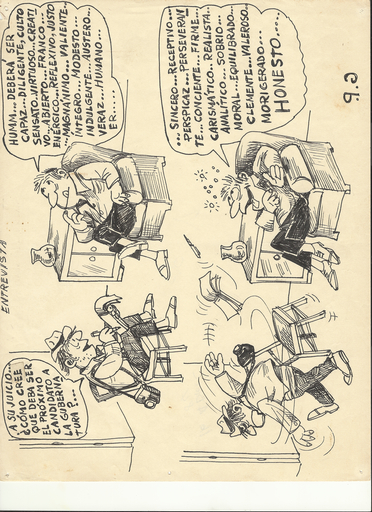 ENTREVISTA
A SU JUICIO...
¿CÓMO CREE
QUE DEBA SER
EL PRÓXIMO
CANDIDATO A
LA GUBERNA
TURA?...
HUMM.. DEBERÁ SER
CAPAZ...DILIGENTE, CULTO
SENSATO..VIRTUOSO..CREATI
VO..ABIERTO...FRANCO...
ENÉRGICO..REFLEXIVO..JUSTO
...MAGNÁNIMO...VALIENTE..
INTEGRO...MODESTO...
INDULGENTE..AUSTERO..
VERAZ...HUMANO...
ER.....
...SINCERO...RECEPTIVO...
PERSPICAZ...PERSEVERAN
TE...CONCIENTE...FIRME...
CARISMÁTICO...REALISTA..
ANALÍTICO..SOBRIO...
MORAL...EQUILIBRADO..
CLEMENTE..VALEROSO..
MORIGERADO...
HONESTO.....
9.6